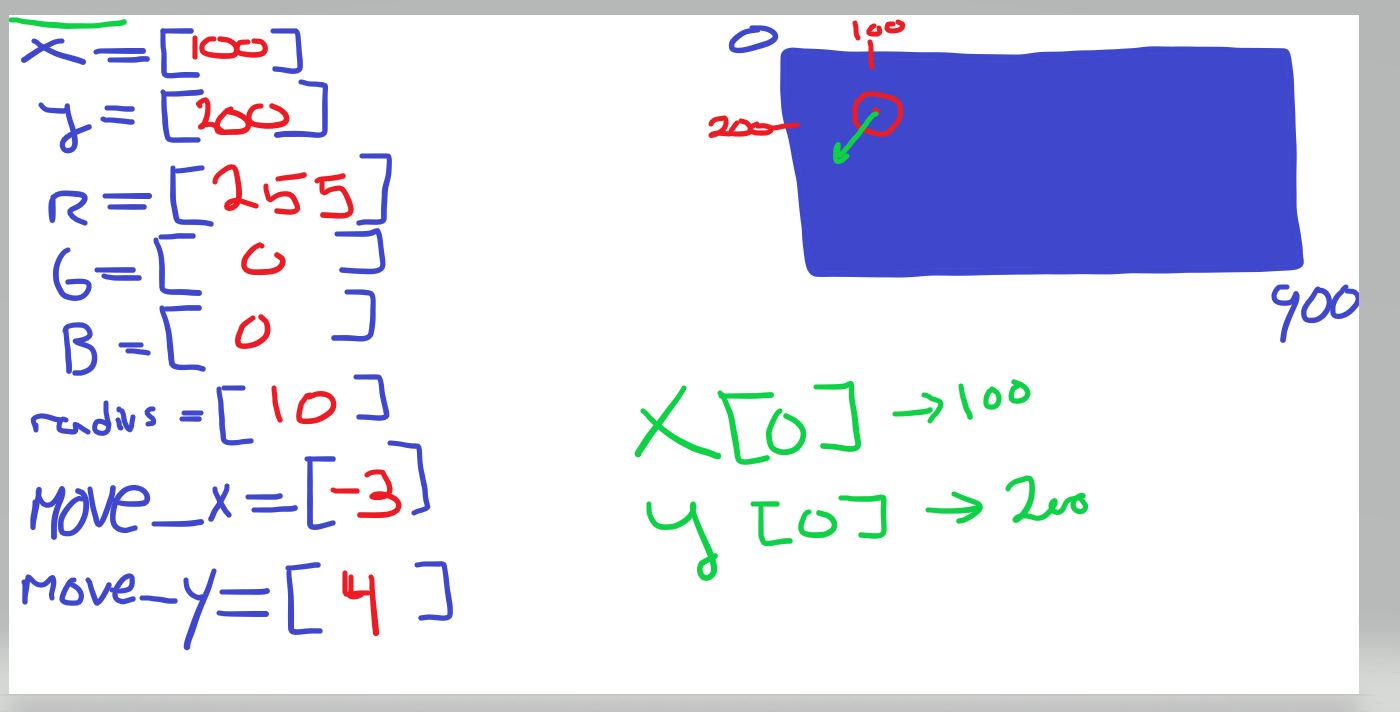 x = [100]
y = [200]
R = [255]
G = [0]
B = [0]
radius = [10]
move_x = [-3]
move_y = [4]
0
100
200
900
x[0] → 100
y[0] → 200